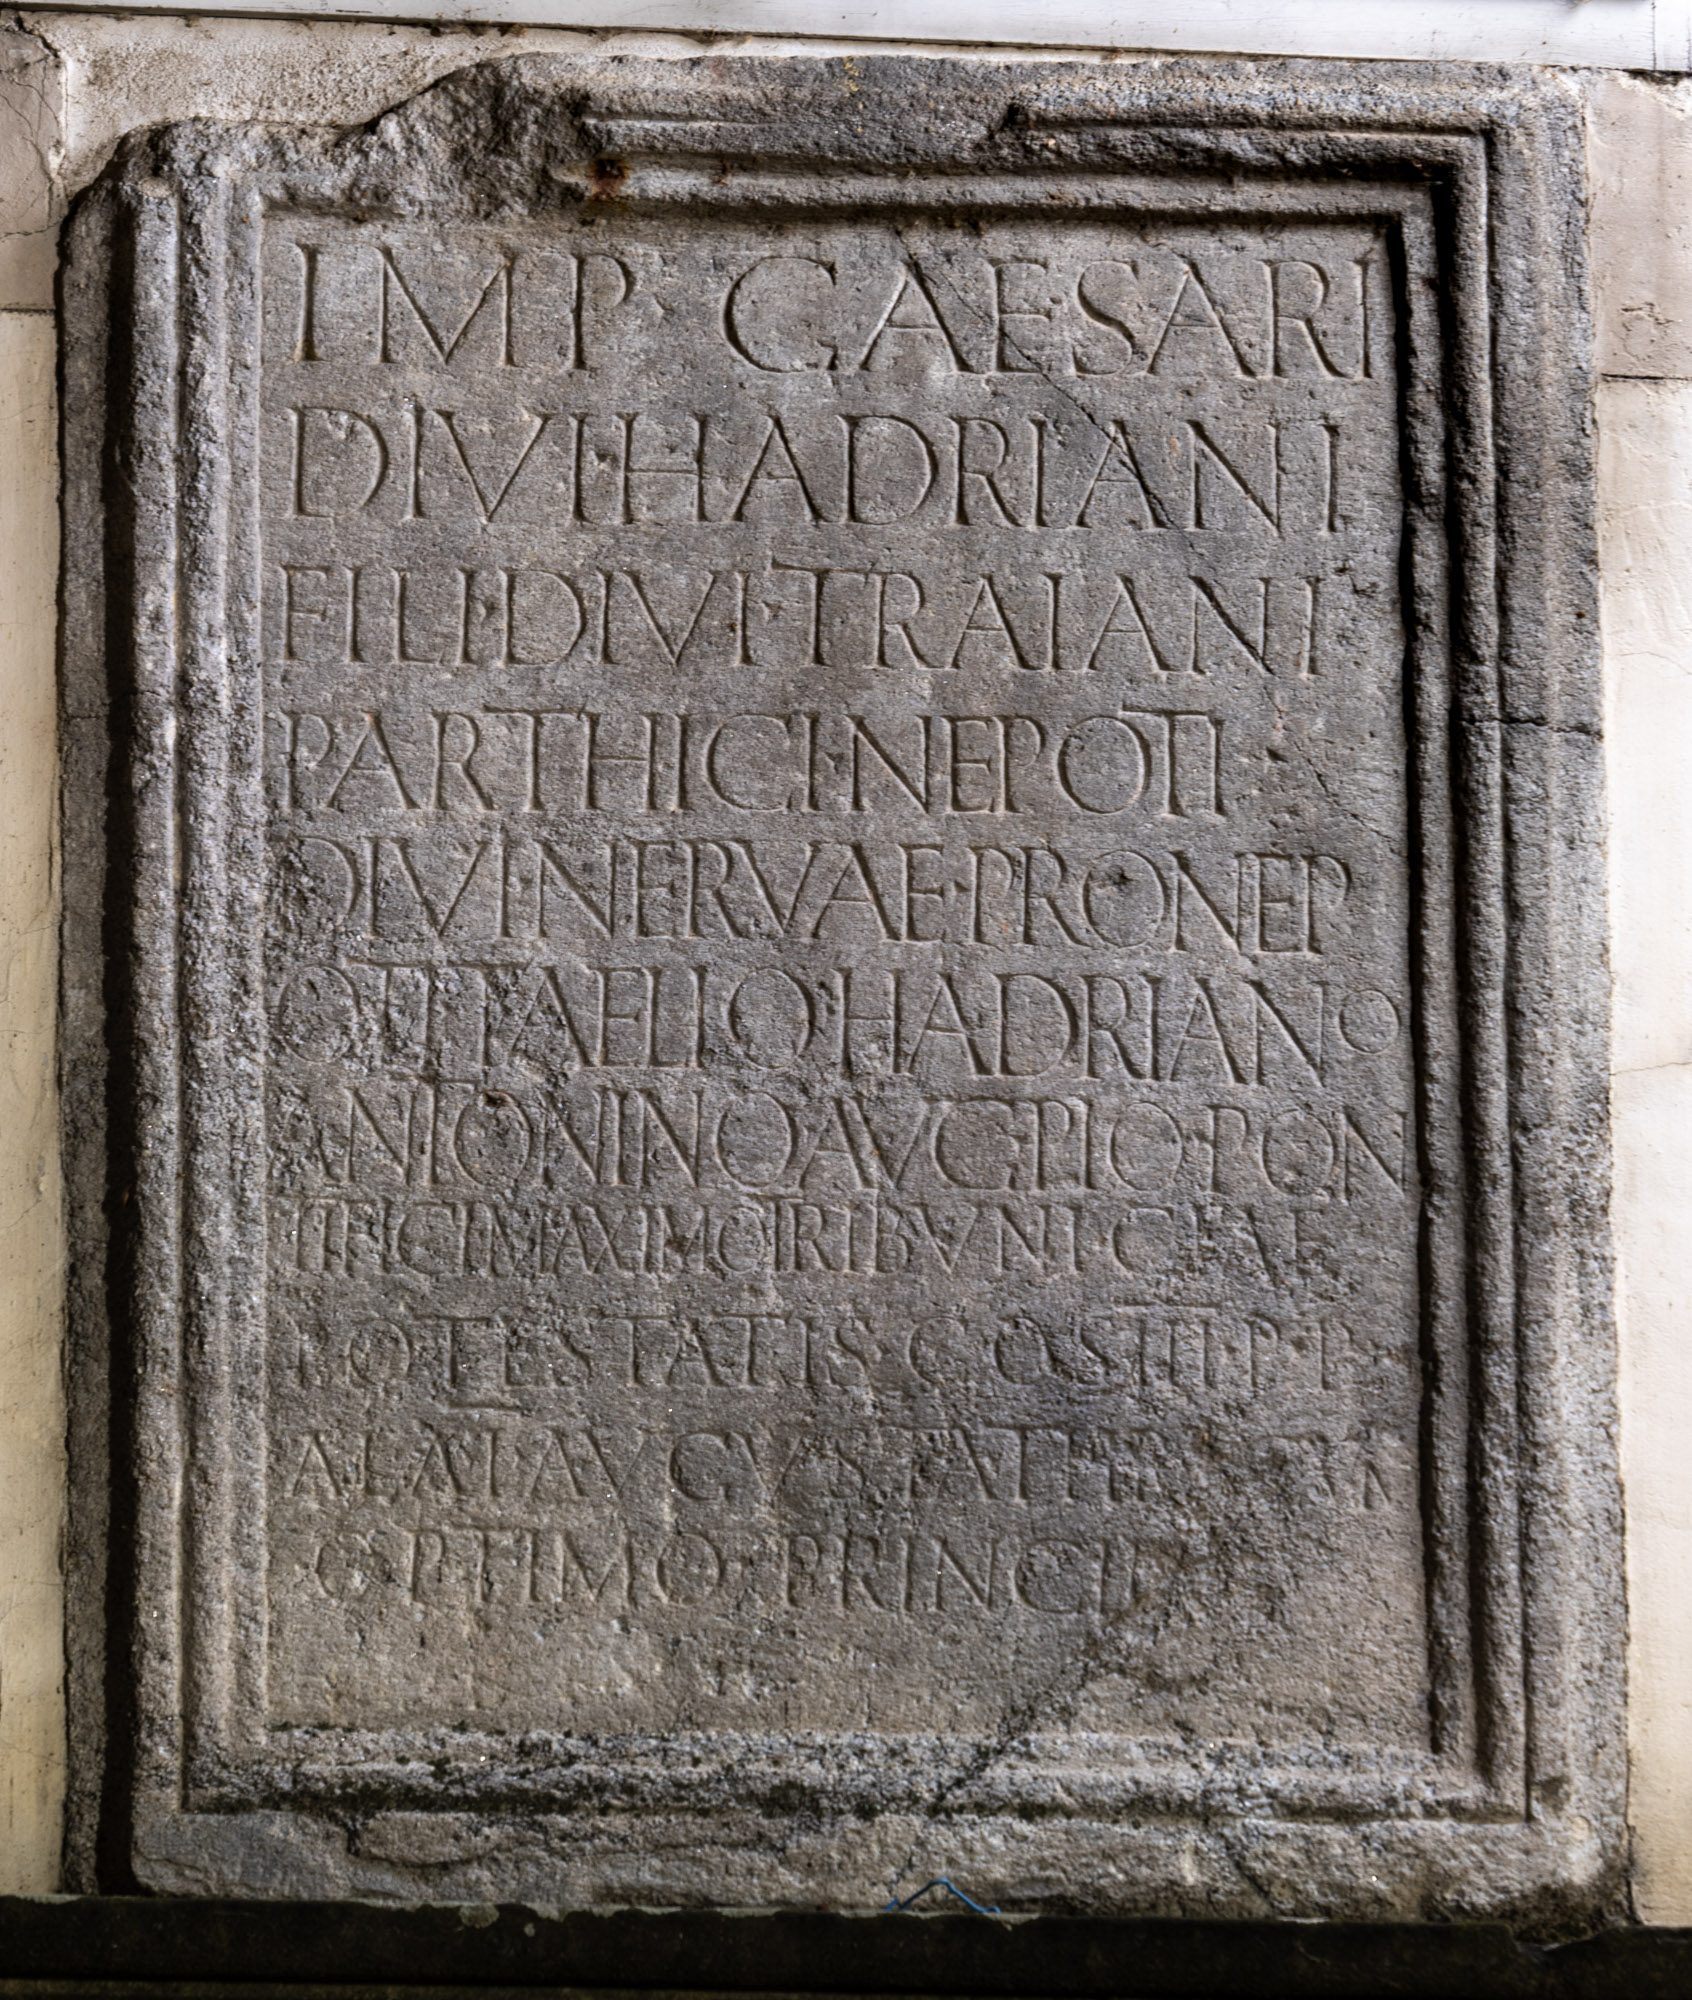 IMP · CAESARI
DIVI HADRIANI
FILI DIVI TRAIANI
PARTHICI · NEPOTI
DIVI · NERVAE · PRONEP
OTI T AELIO HADRIANO
ANTONINO AVG · PIO · PON
TIFICI MAXIMO TRIBVNICIAE
POTESTATIS COS III · P P
ALA I AVGVSTA
OPTIMO · PRINCIP